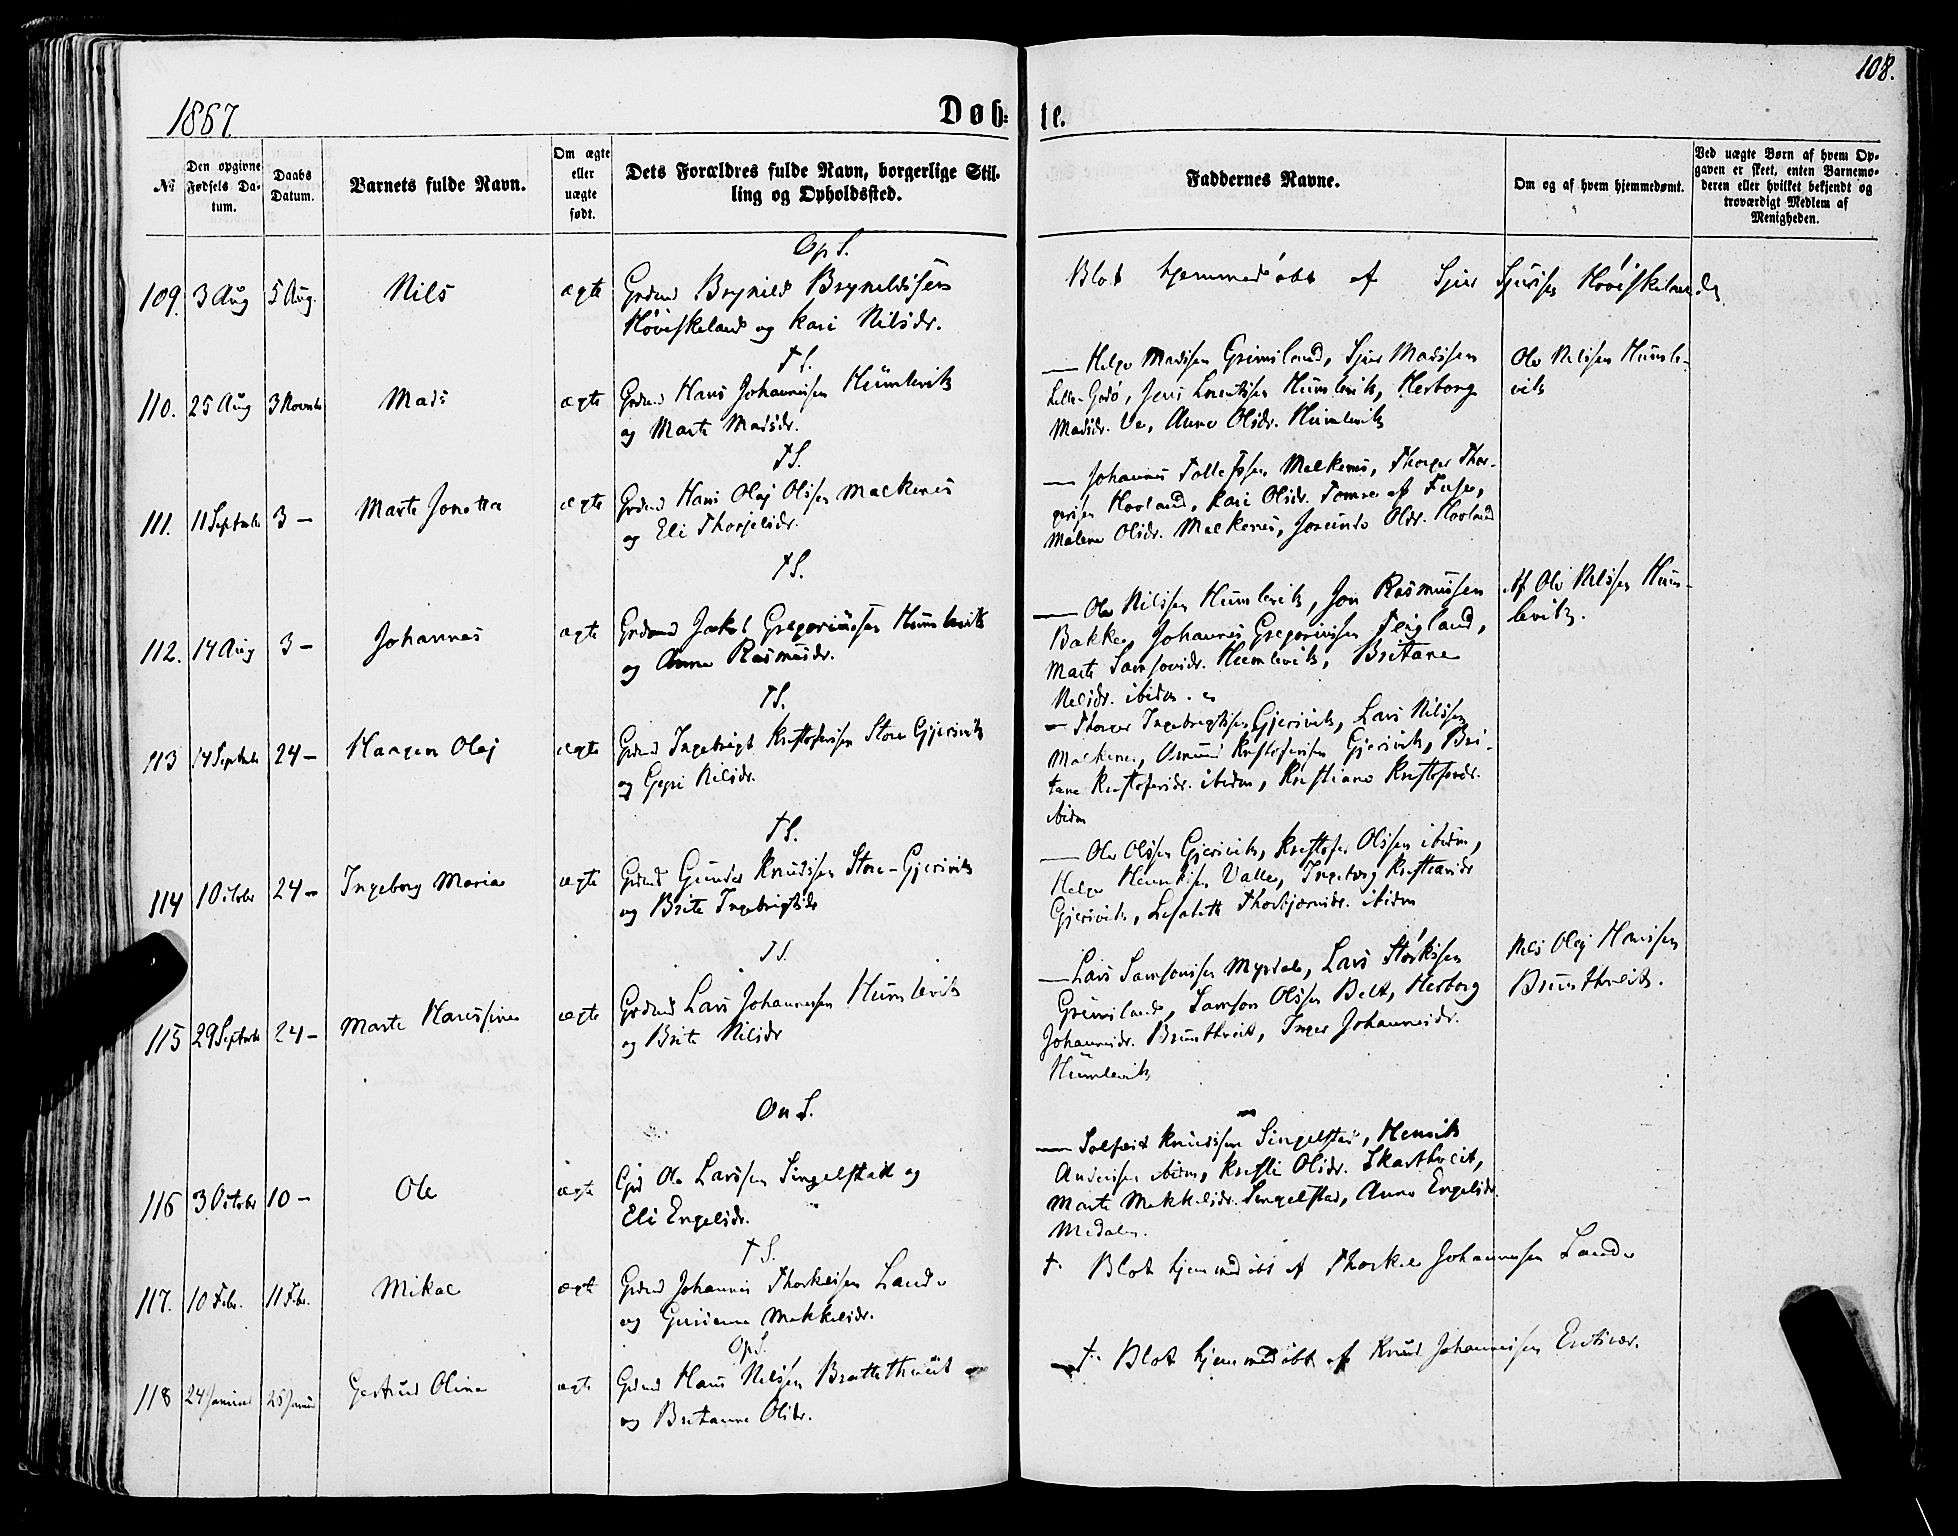 108.
1867
Døb-
te.
№
Den opgivne Fødsels Da-
tum.
Daabs
Datum.
Barnets fulde Navn.
Om ægte
eller
uægte
født.
Dets Forældres fulde Navn, borgerlige Stil-
ling og Opholdssted.
Faddernes Navne.
Om og af hvem hjemmedømt.
Ved uægte Børn af hvem Op-
gaven er skeet, enten Barnemo-
deren eller hvilket bekjendt og
troværdigt Medlem af
Menigheden.
Op S.
109. 3 Aug 5 Aug. Nils ægte Grdmd Brynild Brynildssen
Høviskeland og Kari Nilsdr.
Blot hjemmedøbt af Sjur Sjursen Høviskeland
T S.
110. 25 Aug 3 Novmb Mads ægte Grdmd Hans Johannessen Humlevik
og Marte Madsdr.
— Helge Madssen Grimsland, Sjur Madssen
Lille-Godø, Jens Lorentssen Humlevik, Herborg
Madsdr. Ve, Anne Olsdr. Humlevik
Ole Nilssen Humle-
vik
T S.
111. 11 Septmb 3 — Marte Jonetta ægte Grdmd Hans Olaj Olssen Malkenes
og Eli Thorjelsdr.
— Johannes Tollefssen Malkenes, Thorger Thor-
gersen Hovland, Kari Olsdr. Tomre af Fuse,
Malene Olsdr. Malkenes, Olsdr. Hovland
T S.
112. 14 Aug 3 — Johannes ægte Grdmd Jakob Gregoriussen Humlevik
og Anna Rasmusdr.
— Ole Nilssen Humlevik, Jon Rasmussen
Bakke, Johannes Gregoriussen Teigland,
Marte Samsonsdr. Humlevik, Britane
Nelsdr. ibidm.
Af Ole Nilssen Hum-
levik.
T S.
113 14 Septmb 24 — Haagen Olaj ægte Grdmd Ingebrigt Kristofersen Store Gjersvik
og Gyri Nilsdr.
— Thorger Ingebrigtssen Gjersvik, Lars Nilssen
Malkenes, Osmund Kristofersen Gjersvik, Bri-
tane Kristofersdr. ibidm, Kristiane Kristofersdr.
ibidm
T S.
114 1 October 24 — Ingeborg Maria ægte Grdmd Gunder Knudssen Store-Gjersvik
og Brite Ingebrigtsdr
— Ole Olssen Gjersvik, Kristofer Olssen ibidm,
Helge Henrikssen Valle, Ingeborg Kristiansdr
Gjersvik, Lisabeth Thorbjørnsdr. ibidm
T S.
115 29 Septmb 24 — Marte Hansine ægte Grdmd Lars Johannessen Humlevik
og Brite Nilsdr
— Lars Samsonssen Myrdal, Lars Størkssen
Grimsland, Samson Olssen Belt, Herborg
Johannesdr. Bruntveit, Inger Johannesdr.
Humlevik
Nils Olaj Hanssen
Bruntveit.
On S.
116 3 October 10 — Ole ægte Gjs Ole Larssen Singelstad og
Eli Engelsdr.
— Salfest Knudssen Singelstad, Henrik
Anderssen ibidm, Kristi Olsdr. Skartveit,
Marte Mikkelsdr. Singelstad, Anna Engelsdr
Medalen.
T S.
117. 10 Febr. 11 Febr. Mikal ægte Grdmd Johannes Thorkelssen Lande
og Guriane Mikkelsdr.
†. Blot hjemmedøbt af Thorkel Johannessen Lande
Op S.
118 24 Januar 25 Januar Gertrud Oline ægte Grdmd Hans Nilssen Brattethveit
og Britanne Olsdr.
— †. Blot hjemmedøbt af Knud Johannessen